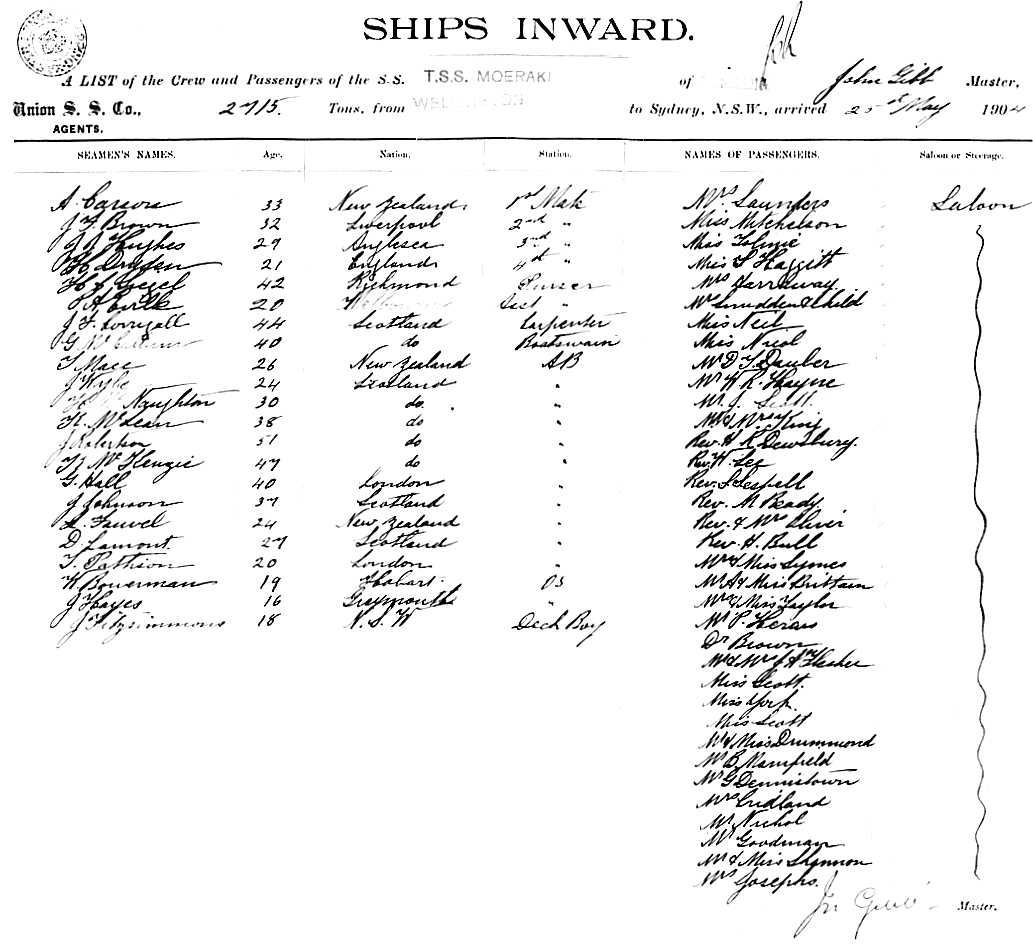 SHIPS INWARD.
A LIST of the Crew and Passengers of the S.S. T.S.S. MOERAKI of John Gibb Master,
Union S. S. Co., 2715. Tons, from WELLINGTON to Sydney, N.S.W., arrived 25th May 1904
AGENTS.
SEAMEN'S NAMES. Age. Nation. Station. NAMES OF PASSENGERS. Saloon or Steerage.
A. Carson 33 New Zealand 1st Mate Mrs Saunders Saloon
J F Brown 32 Liverpool 2nd " Miss Mitchelson
J J Hughes 29 Anglesea 3rd " Miss Tolmie
H Dryden 21 England 4th " Miss S Haggitt
42 Richmond Purser Mrs Garraway
20 Asst " Child
J. F. Corrigall 44 Scotland Carpenter Miss Neil
40 do Boatswain Miss Nicol
T Mace 26 New Zealand AB Mr D T Dauber
J Kyle 24 Scotland " Mr H R Hayne
Naughton 30 do " Mr J. Scott.
H. McLean 38 do " Mr & Mrs King
J Robertson 51 do " Rev. H R Dewsbury.
McKenzie 47 do " Rev. W. Lee
G. Hall 40 London " Rev.
J Johnson 37 Scotland " Rev. M Beady.
Fauvel 24 New Zealand " Rev. & Mrs Oliver
D. Lamont. 27 Scotland " Rev. H. Bull
T. Pattison 20 London " Mr & Miss Symes
W. Bowerman 19 Hobart. OS Mr A & Miss Brittain
J Hayes 16 Greymouth " Mr & Miss Taylor
J Fitzsimmons 18 N. S. W Deck Boy Mr P.
Dr Brown
Mr & Mrs J A Flesher
Miss Scott.
Miss York.
Miss Scott
Mr & Miss Drummond
Mr B. Mansfield
Mr G Dennistown
Mrs Cridland
Mr Nichol
Mr Goodman
Mr & Miss Shannon
Mrs Josephs.
Jn Gibb Master.